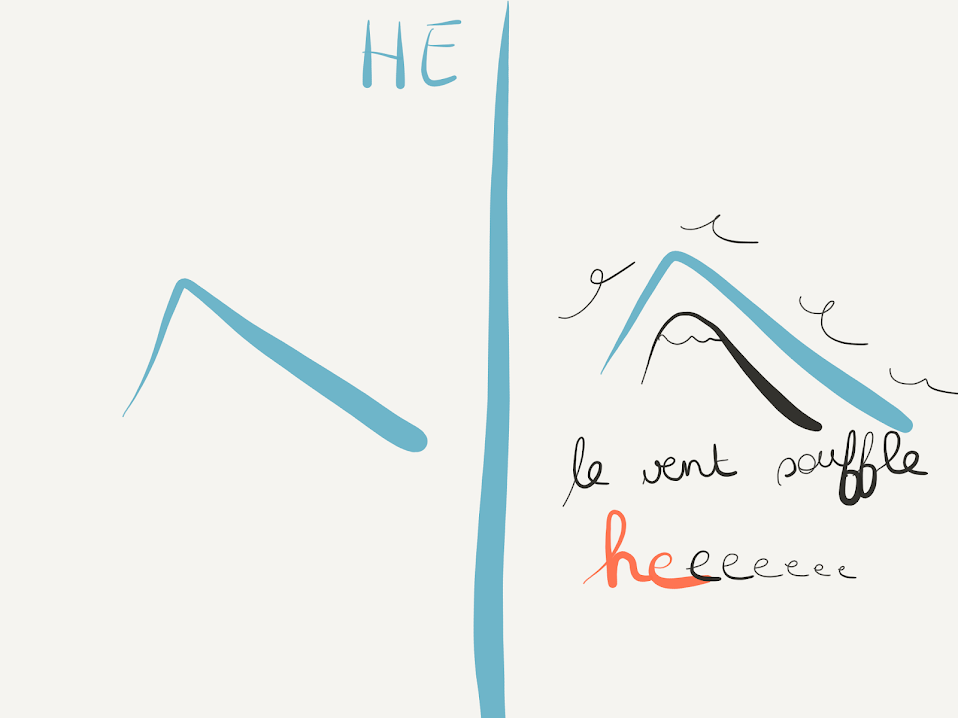 HE
へ
へ
le vent souffle
heeeeeee